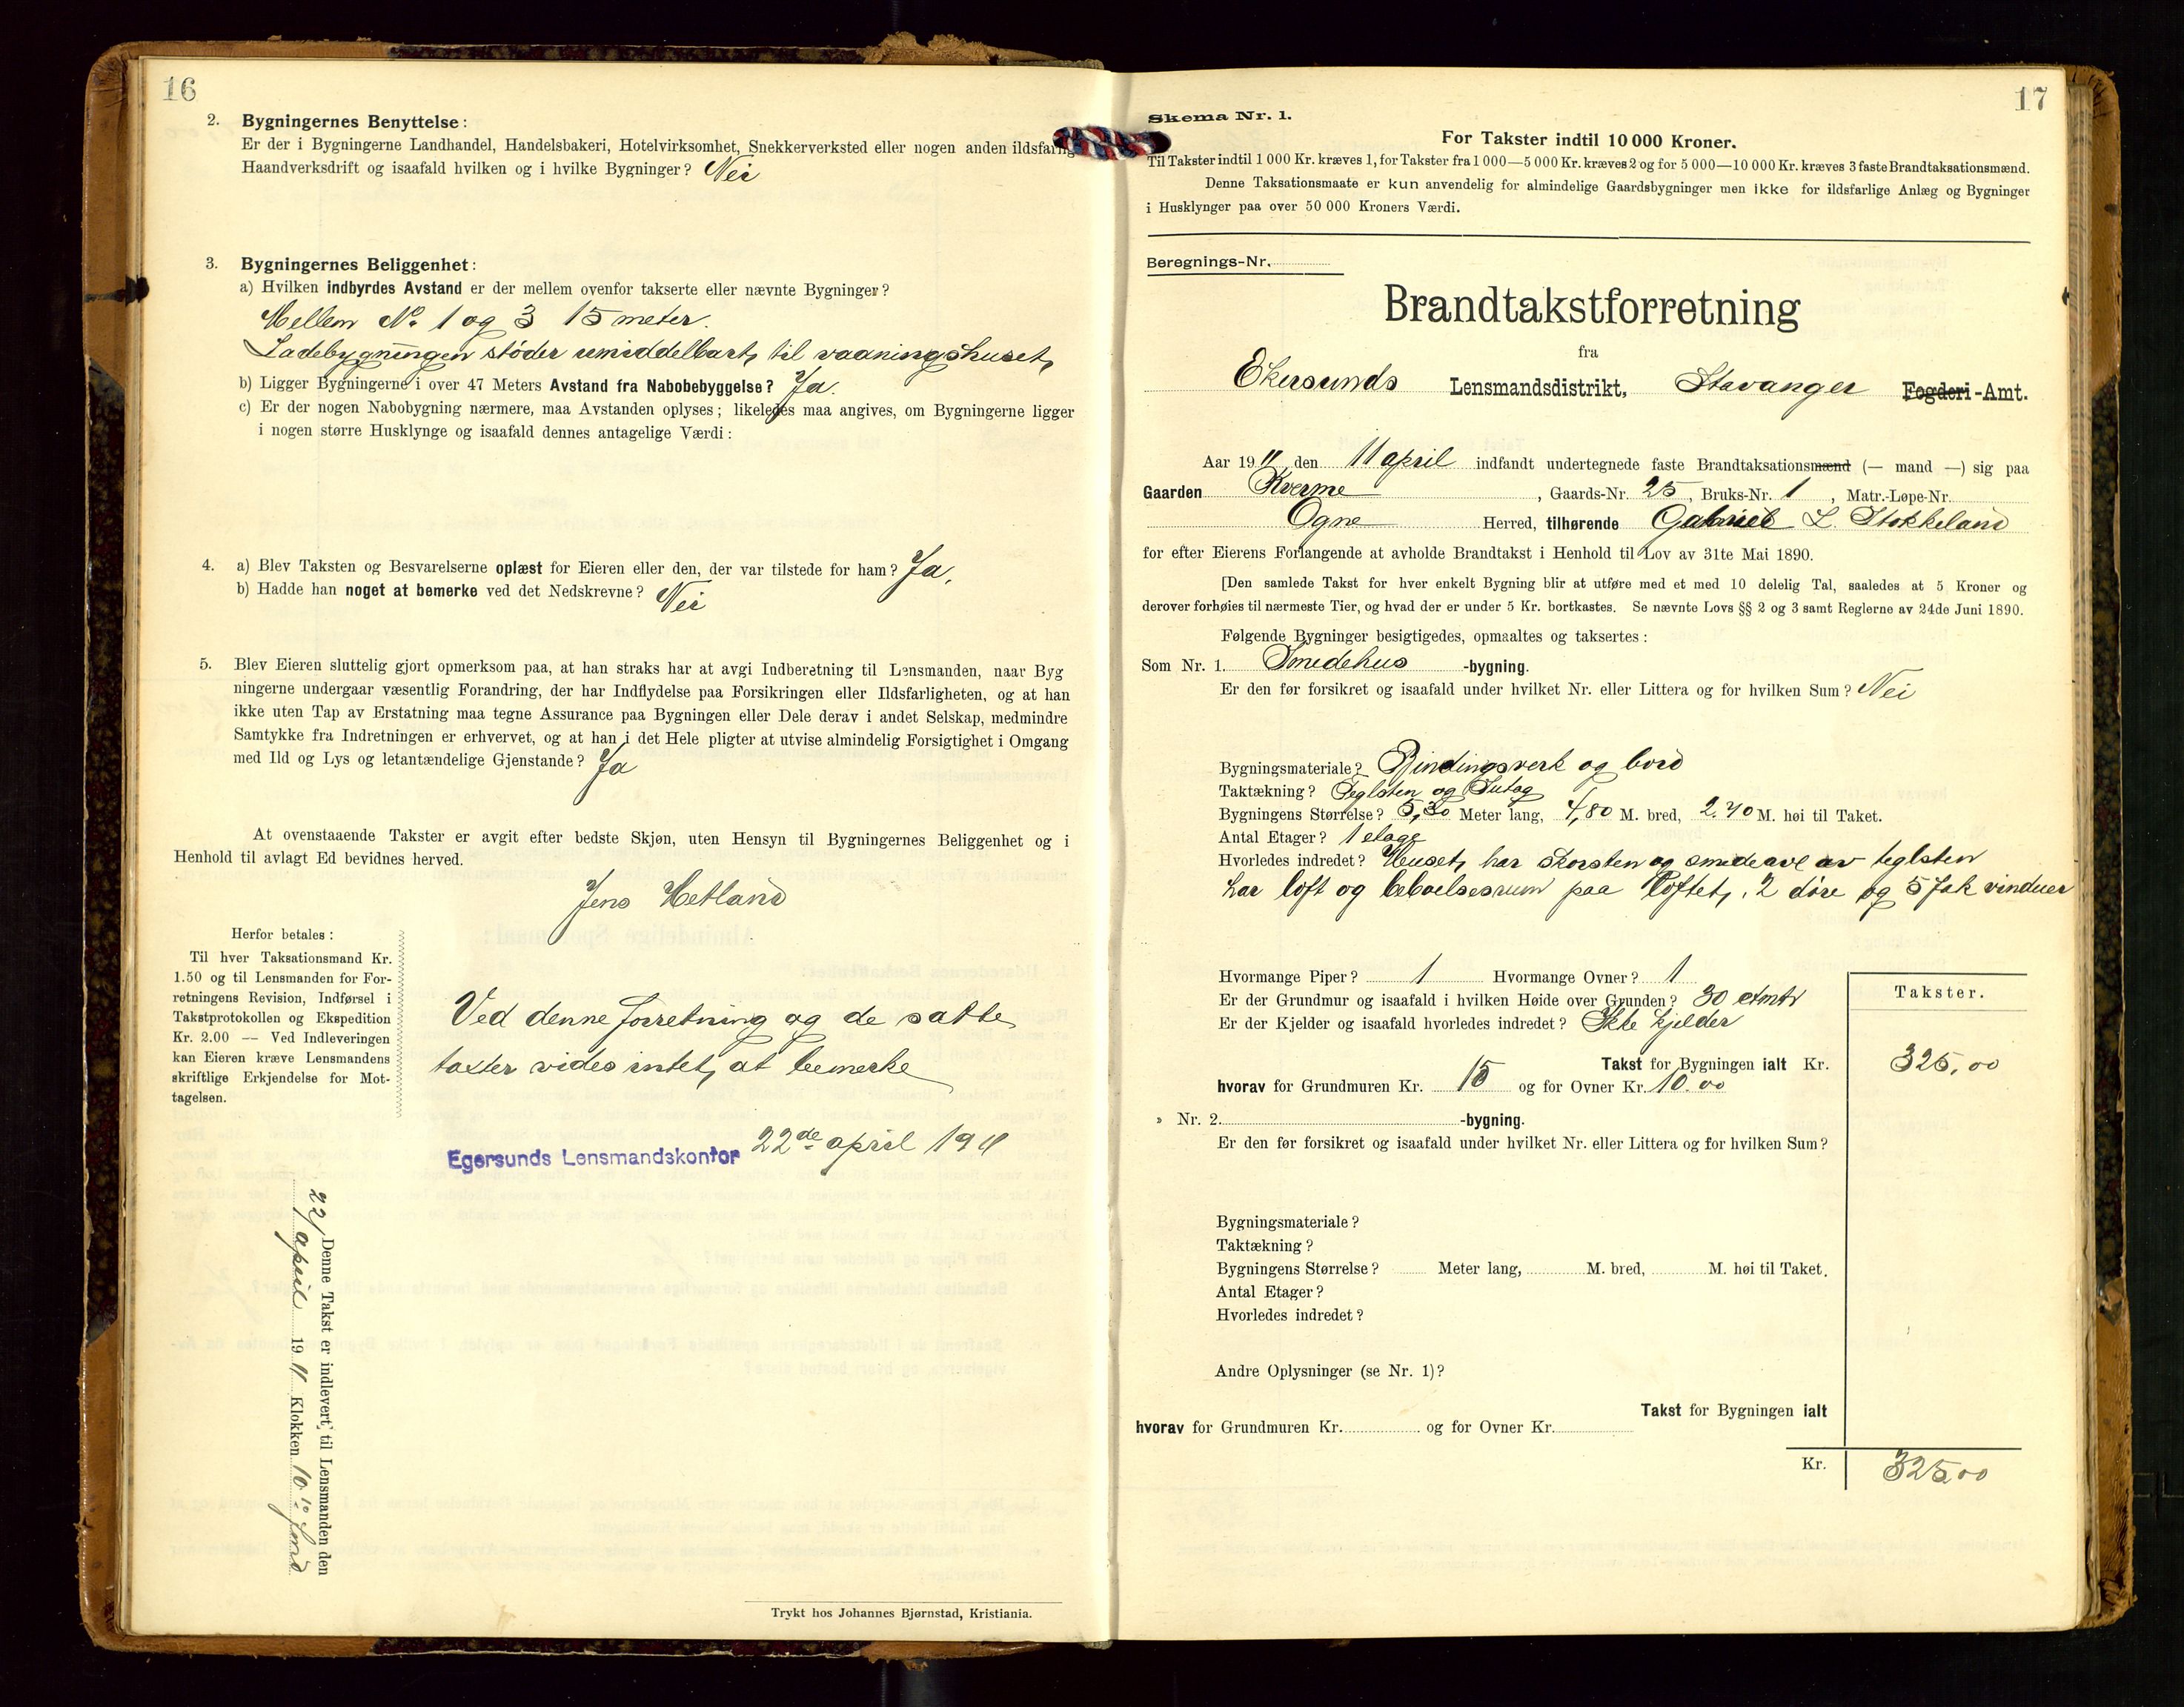 16
2. Bygningernes Benyttelse:
Er der i Bygningerne Landhandel, Handelsbakeri, Hotelvirksomhet, Snekkerverksted eller nogen anden ildsfarlig
Haandverksdrift og isaafald hvilken og i hvilke Bygninger? Nei
3. Bygningernes Beliggenhet:
a) Hvilken indbyrdes Avstand er der mellem ovenfor takserte eller nævnte Bygninger?
Mellem No. 1 og 3 15 meter.
Ladebygningen støder umiddelbart til vaaningshuset
b) Ligger Bygningerne i over 47 Meters Avstand fra Nabobebyggelse? Ja.
c) Er der nogen Nabobygning nærmere, maa Avstanden oplyses; likeledes maa angives, om Bygningerne ligger
i nogen større Husklynge og isaafald dennes antagelige Værdi:
4. a) Blev Taksten og Besvarelserne oplæst for Eieren eller den, der var tilstede for ham? Ja.
b) Hadde han noget at bemerke ved det Nedskrevne? Nei
5. Blev Eieren sluttelig gjort opmerksom paa, at han straks har at avgi Indberetning til Lensmanden, naar Byg
ningerne undergaar væsentlig Forandring, der har Indflydelse paa Forsikringen eller Ildsfarligheten, og at han
ikke uten Tap av Erstatning maa tegne Assurance paa Bygningen eller Dele derav i andet Selskap, medmindre
Samtykke fra Indretningen er erhvervet, og at han i det Hele pligter at utvise almindelig Forsigtighet i Omgang
med Ild og Lys og letantændelige Gjenstande? Ja
At ovenstaaende Takster er avgit efter bedste Skjøn, uten Hensyn til Bygningernes Beliggenhet og i
Henhold til avlagt Ed bevidnes herved.
Jens Hetland
Herfor betales:
Til hver Taksationsmand Kr.
1.50 og til Lensmanden for For-
retningens Revision, Indførsel i
Takstprotokollen og Ekspedition
Kr. 2.00 — Ved Indleveringen
kan Eieren kræve Lensmandens
skriftlige Erkjendelse for Mot-
tagelsen.
Ved denne forretning og de satte
taxter vides intet at bemerke
Egersunds Lensmandskontor 22de april 1911
Denne Takst er indlevert til Lensmanden den
22/ april 1911 Klokken 10.10 fmd
Trykt hos Johannes Bjørnstad, Kristiania.
17
Skema Nr. 1.
For Takster indtil 10 000 Kroner.
Til Takster indtil 1 000 Kr. kræves 1, for Takster fra 1 000—5 000 Kr. kræves 2 og for 5 000—10 000 Kr. kræves 3 faste Brandtaksationsmænd.
Denne Taksationsmaate er kun anvendelig for almindelige Gaardsbygninger men ikke for ildsfarlige Anlæg og Bygninger
i Husklynger paa over 50 000 Kroners Værdi.
Beregnings-Nr.
Brandtakstforretning
fra
Ekersunds Lensmandsdistrikt, Stavanger Fogderi-Amt.
Aar 1911 den 11 april indfandt undertegnede faste Brandtaksationsmænd (— mand —) sig paa
Gaarden Kverme, Gaards-Nr. 25, Bruks-Nr. 1, Matr.-Løpe-Nr.
Ogne Herred, tilhørende Gabriel L. Stokkeland
for efter Eierens Forlangende at avholde Brandtakst i Henhold til Lov av 31te Mai 1890.
[Den samlede Takst for hver enkelt Bygning blir at utføre med et med 10 delelig Tal, saaledes at 5 Kroner og
derover forhøies til nærmeste Tier, og hvad der er under 5 Kr. bortkastes. Se nævnte Lovs §§ 2 og 3 samt Reglerne av 24de Juni 1890.
Følgende Bygninger besigtigedes, opmaaltes og taksertes:
Som Nr. 1. Smedehus -bygning.
Er den før forsikret og isaafald under hvilket Nr. eller Littera og for hvilken Sum? Nei
Bygningsmateriale? Bindingsverk og bord
Taktækning? Teglsten og Sutag
Bygningens Størrelse? 5,30 Meter lang, 4,80 M. bred, 2.40 M. høi til Taket.
Antal Etager? 1 etage
Hvorledes indredet? Huset har skorsten og smedeavl av teglsten
har loft og beboelsesrum paa loftet, 2 døre og 5 fak vinduer
Hvormange Piper? 1 Hvormange Ovner? 1
Er der Grundmur og isaafald i hvilken Høide over Grunden? 30 ctmtr
Er der Kjelder og isaafald hvorledes indredet? Ikke kjelder
Takster.
Takst for Bygningen ialt Kr. 325,00
hvorav for Grundmuren Kr. 15 og for Ovner Kr. 10.00
» Nr. 2. -bygning.
Er den før forsikret og isaafald under hvilket Nr. eller Littera og for hvilken Sum?
Bygningsmateriale?
Taktækning?
Bygningens Størrelse? Meter lang, M. bred, M. høi til Taket.
Antal Etager?
Hvorledes indredet?
Andre Oplysninger (se Nr. 1)?
Takst for Bygningen ialt
hvorav for Grundmuren Kr. og for Ovner Kr.
Kr. 325,00